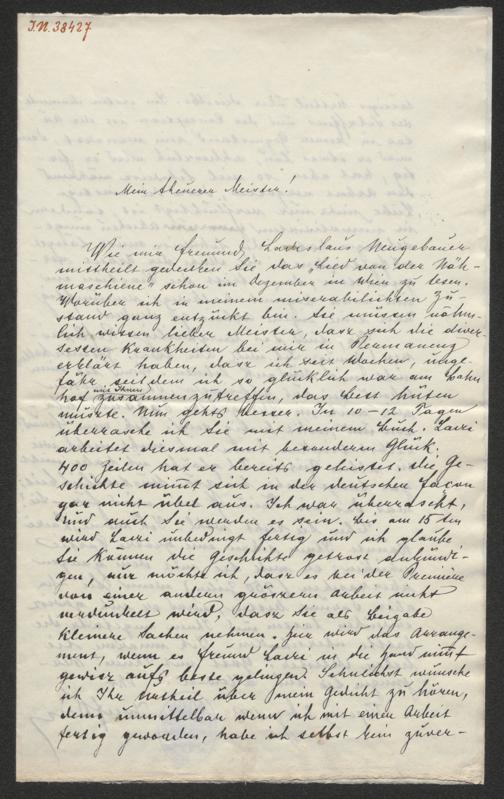 I.N. 38427
Mein theuerer Meister!
Wie mir Freund Ladislaus Neugebauer
mittheilt gedenken Sie das "Lied von der Näh-
maschiene" schon im Dezember in Wien zu lesen.
Worüber ich in meinem miserabilichsten Zu-
stand ganz entzückt bin. Sie müssen nähm-
lich wissen lieber Meister, dasz sich die diver-
sesten Krankheiten bei mir in Permanenz
erklärt haben, dasz ich seit Wochen, unge-
fähr seitdem ich so glücklich war am Bahn
hof mit Ihnen zusammenzutreffen, das Bett hüten
müszte. Nun gehts besser. In 10-12 Tagen
überrasche ich Sie mit meinem Buch. Lairi
arbeitet diesmal mit besonderem Glück.
400 Zeilen hat er bereits geleistet. Die Ge-
schichte nimmt sich in der deutschen Façon
gar nicht übel aus. Ich war überrascht,
und auch Sie werden es sein. Bis am 15ten
wird Lairi unbedingt fertig und ich glaube
Sie können die Geschichte getrost ankündi-
gen, nur möchte ich, dasz es bei der Première
von einer andern gröszern Arbeit nicht
verdunkelt wird, dasz Sie als Beigabe
kleinere Sachen nehmen. Hier wird das Arrange-
ment, wenn es Freund Lairi in die Hand nimmt
gewisz aufs beste gelingen. Sehnlichst wünsche
ich Ihr Urtheil über mein Gedicht zu hören,
denn unmittelbar wenn ich mit einer Arbeit
fertig geworden, habe ich selbst kein zuver-